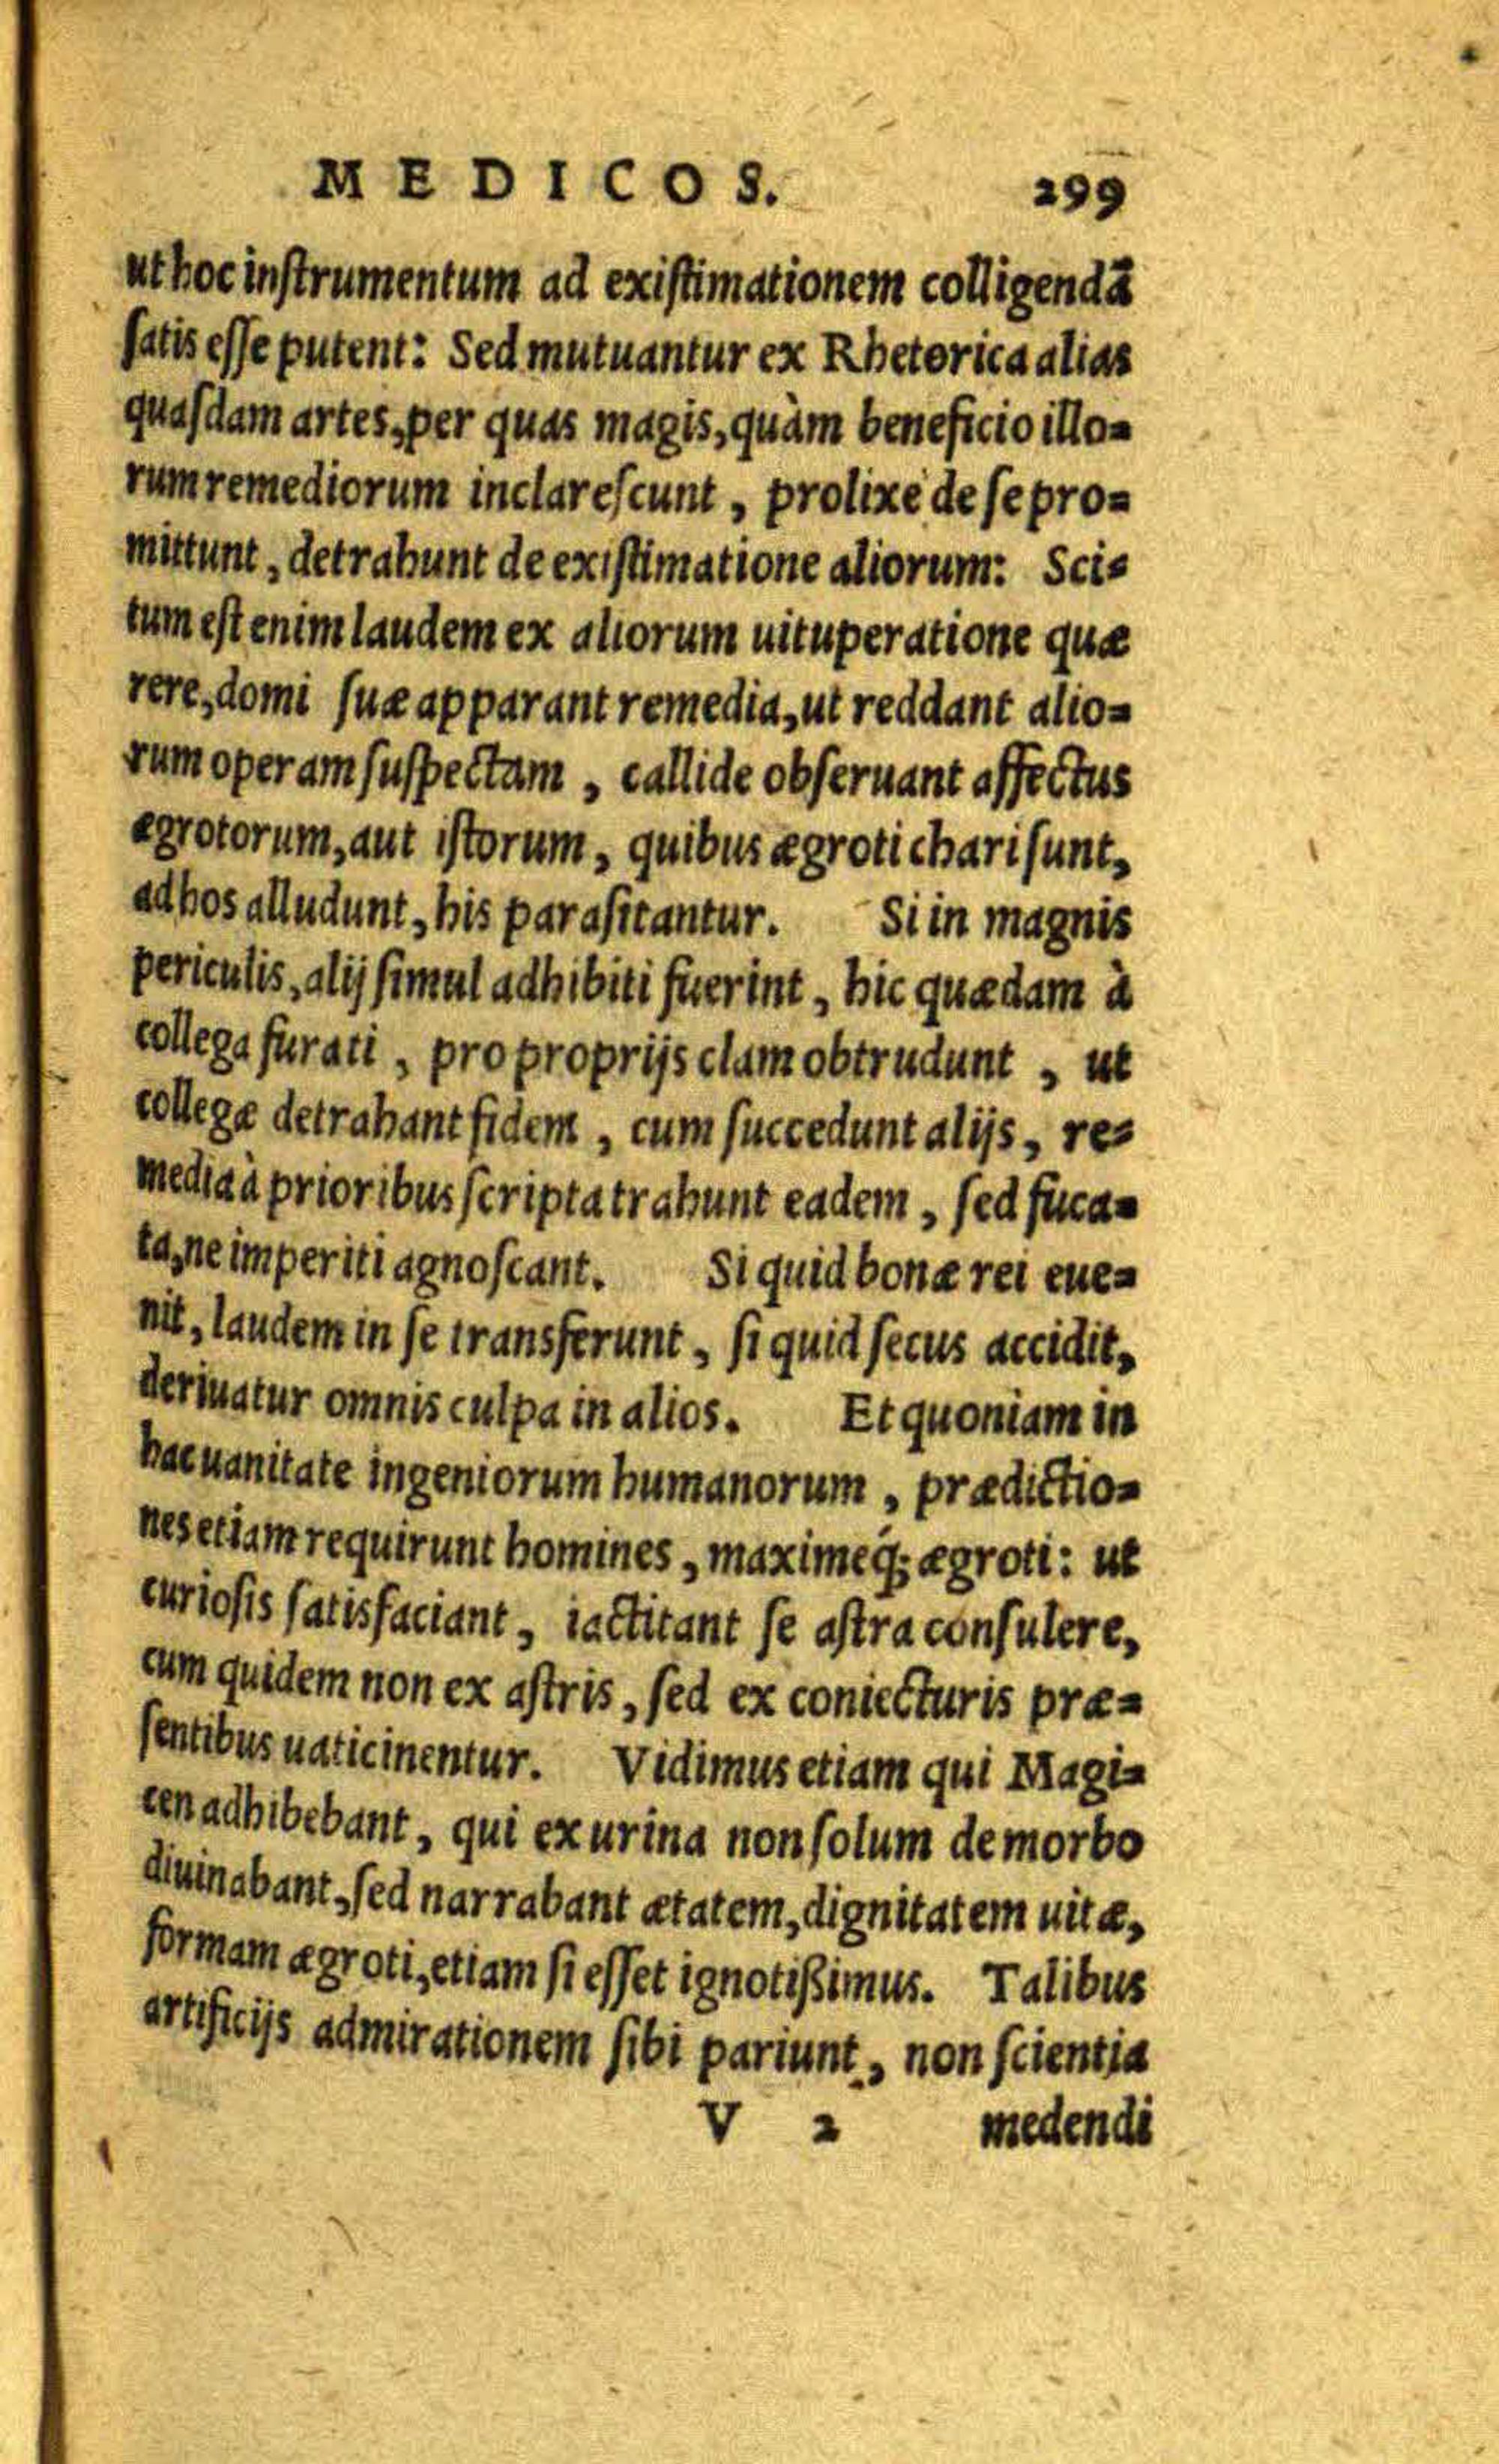 MEDICOS. 299
ut hoc inſtrumentum ad exiſtimationem colligendã
ſatis eſſe putent: Sed mutuantur ex Rhetorica alias
quaſdam artes, per quas magis, quàm beneficio illo-
rum remediorum inclareſcunt, prolixe de ſe pro-
mittunt, detrahunt de exiſtimatione aliorum: Sci-
tum eſt enim laudem ex aliorum uituperatione quæ
rere, domi ſuæ apparant remedia, ut reddant alio-
rum operam ſuſpectam, callide obſeruant affectus
ægrotorum, aut iſtorum, quibus ægroti chari ſunt,
ad hos alludunt, his paraſitantur. Si in magnis
periculis, alij ſimul adhibiti fuerint, hic quædam à
collega furati, pro proprijs clam obtrudunt, ut
collegæ detrahant fidem, cum ſuccedunt alijs, re-
media à prioribus ſcripta trahunt eadem, ſed fuca-
ta, ne imperiti agnoſcant. Si quid bonæ rei eue-
nit, laudem in ſe transferunt, ſi quid ſecus accidit,
deriuatur omnis culpa in alios. Et quoniam in
hac uanitate ingeniorum humanorum, prædictio-
nes etiam requirunt homines, maximeq́; ægroti: ut
curioſis ſatisfaciant, iactitant ſe aſtra conſulere,
cum quidem non ex aſtris, ſed ex coniecturis præ-
ſentibus uaticinentur. Vidimus etiam qui Magi-
cen adhibebant, qui ex urina non ſolum de morbo
diuinabant, ſed narrabant ætatem, dignitatem uitæ,
formam ægroti, etiam ſi eſſet ignotißimus. Talibus
artificijs admirationem ſibi pariunt, non ſcientia
V 2 medendi